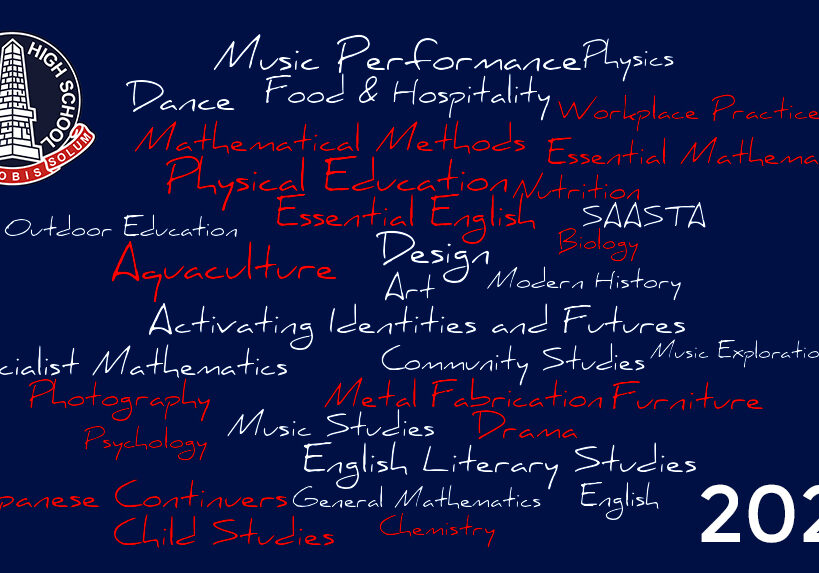 HIGH SCHOOL
OBIS SOLUM
Music Performance Physics
Dance Food & Hospitality Workplace Practice
Mathematical Methods Essential Mathema
Physical Education Nutrition
Essential English SAASTA
Outdoor Education Biology
Aquaculture Design
Art Modern History
Activating Identities and Futures
cialist Mathematics Community Studies Music Exploratio
Photography Metal Fabrication Furniture
Psychology Music Studies Drama
English Literary Studies
panese Continuers General Mathematics English 202
Child Studies Chemistry